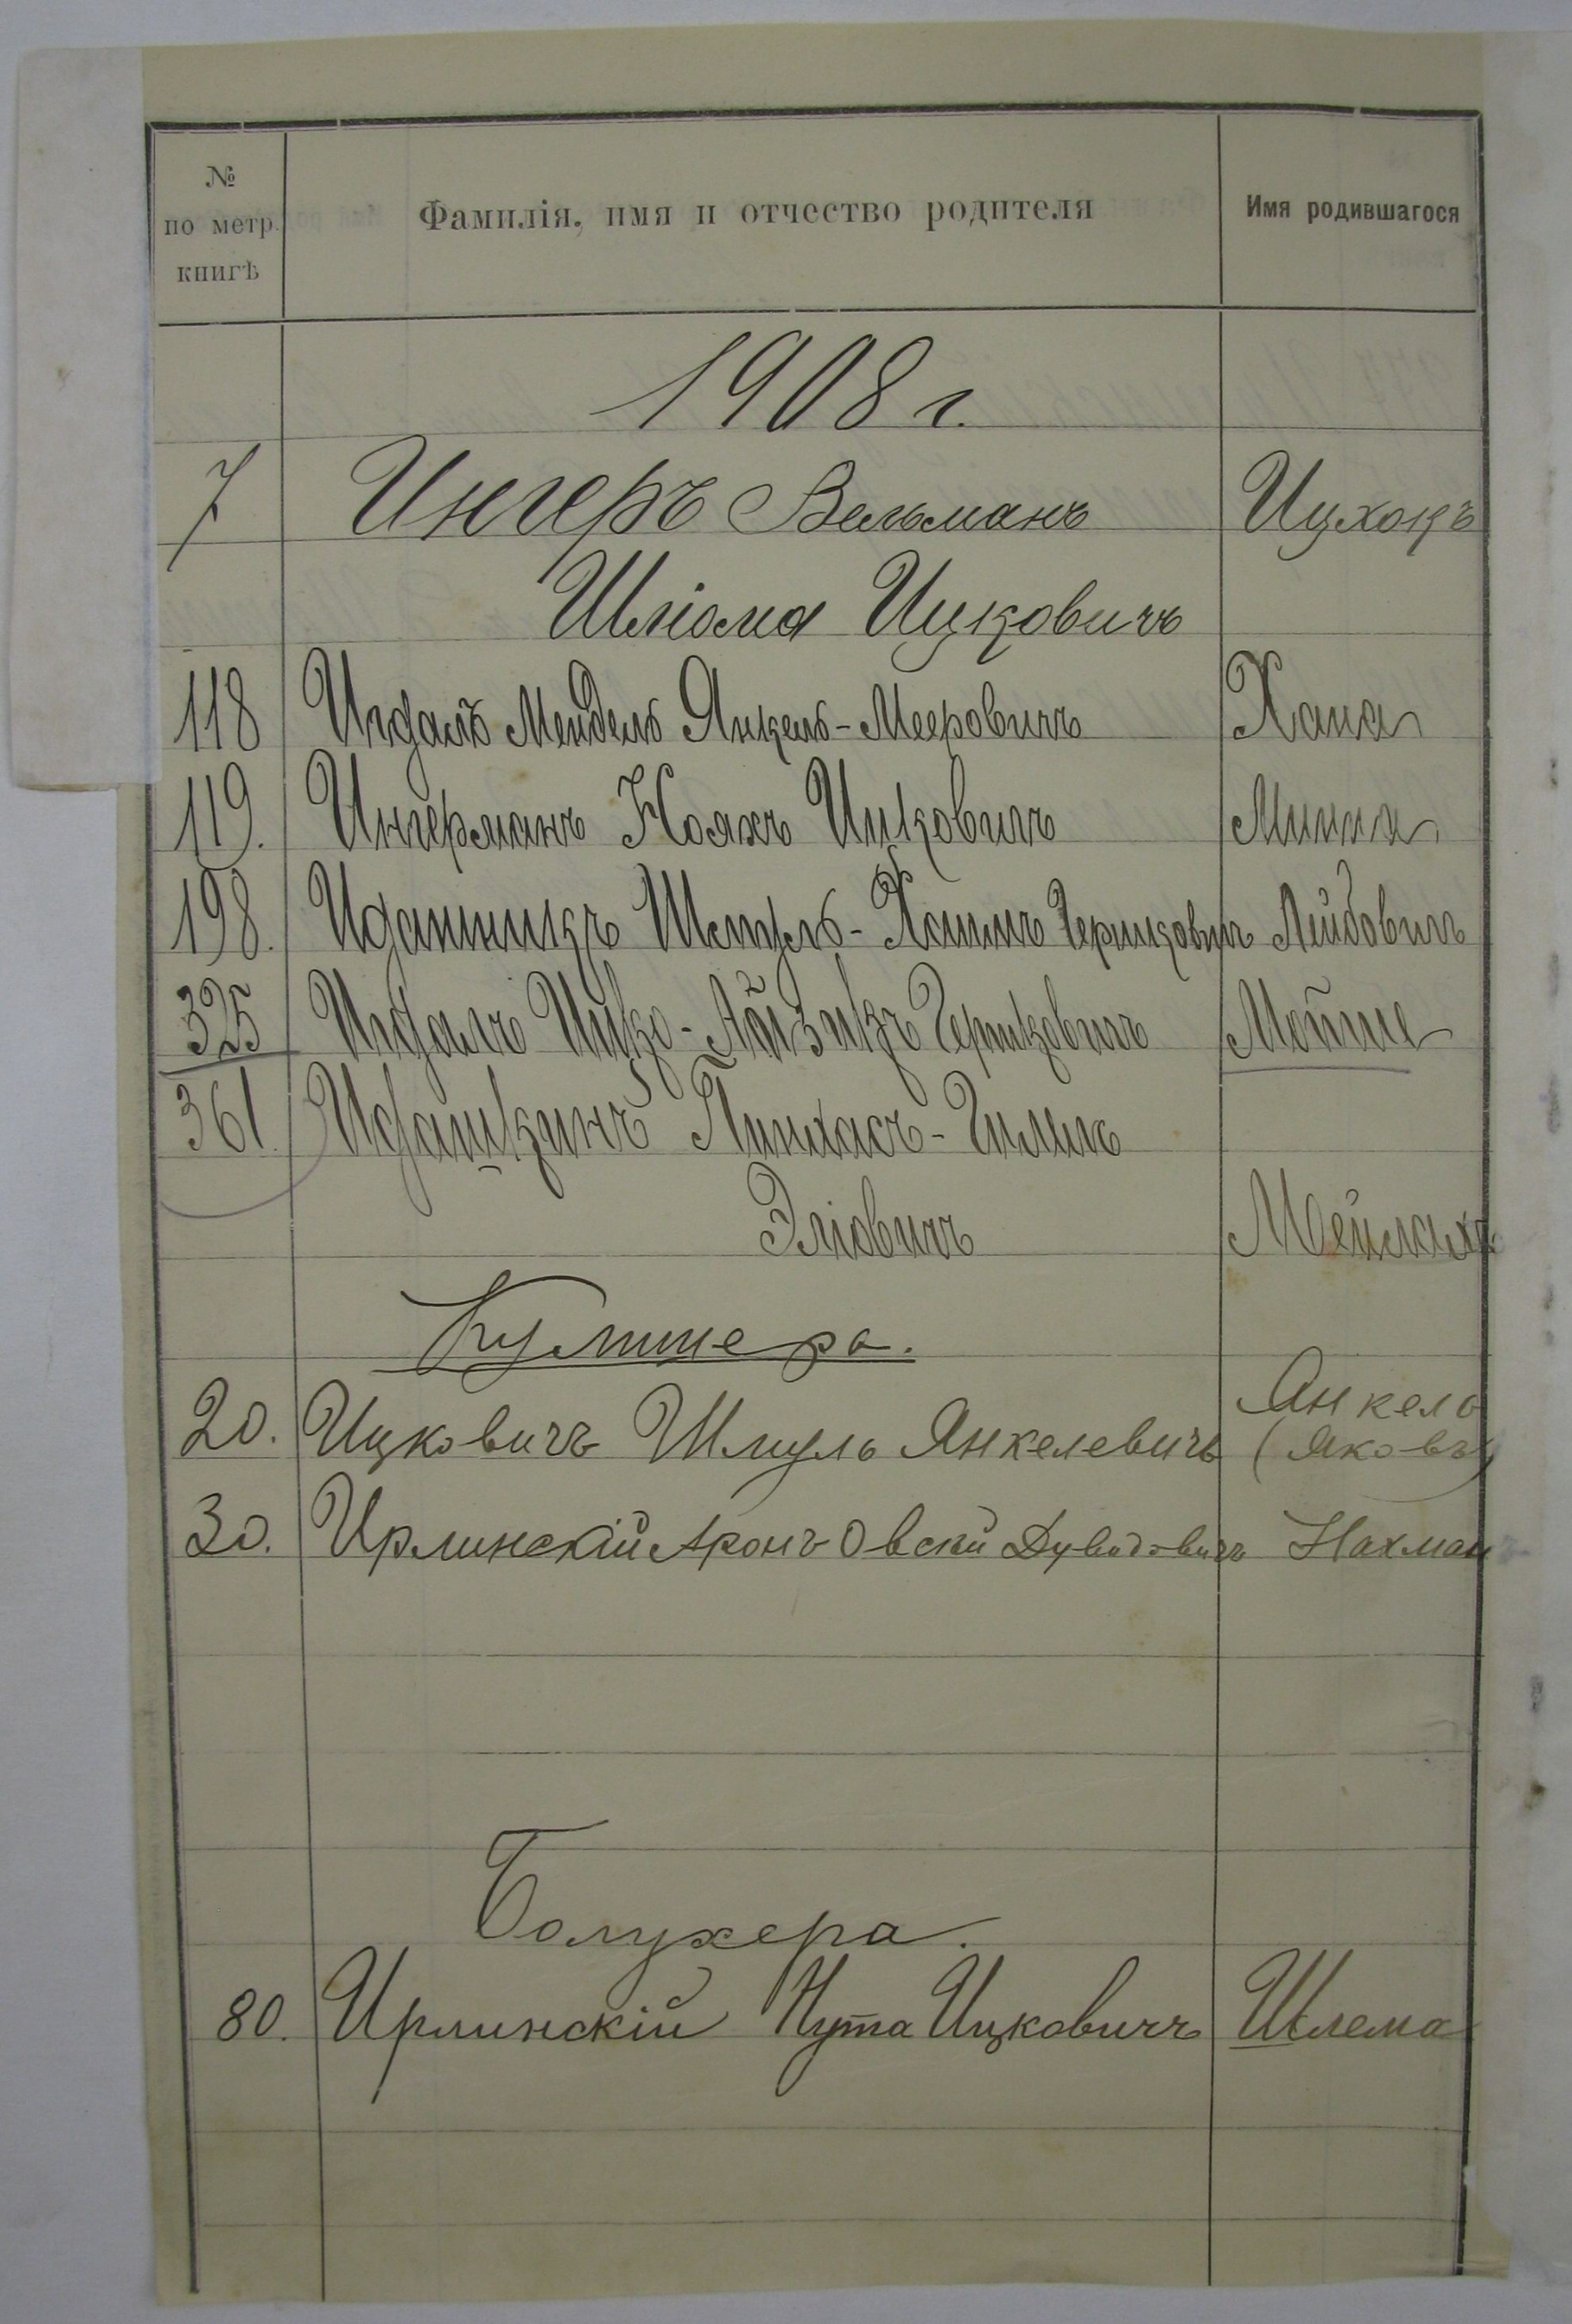 № по метр. книгѣ
Фамилія, имя и отчество родителя
Имя родившагося
1908 г.
7 Ингеръ Вельманъ Ицхокъ
Шліома Ицковичъ
118 Игдалъ Мендель Янкель-Мееровичъ Хана
119. Ингерманъ Нояхъ Ицковичъ Минна
198. Хаимъ Гершковичъ Лейбовичъ
325 Игдалъ Ицко-Айзикъ Гершковичъ Мойше
361. Идашкинъ Пинхасъ-Гилик
Эліовичъ Мейлахъ
Кулишера.
20. Ицковичъ Шмуль Янкелевичъ Янкель
(Яковъ)
30. Ирлинскій Аронъ Овсей Дувидовичъ Нахман
Болухера.
80. Ирлинскій Нута Ицковичъ Шлема